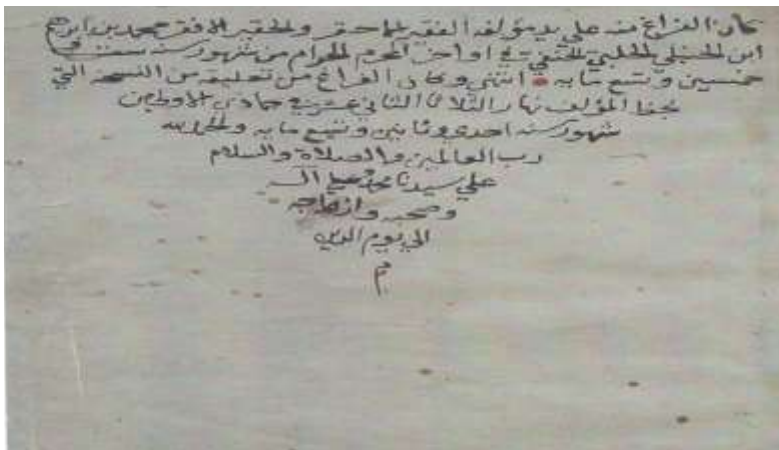 كان الفراغ منه علي يد مؤلفه الفقير الاحقر والحقير الافقر محمد بن ابراهيم
ابن الحنبلي الحلبي الحنفي في اواخر المحرم الحرام من شهور سنة ست و
خمسين وتسع مايه انتهي وكان الفراغ من تعليقه من النسخة التي
بخط المؤلف نهار الثلاثا الثاني عشر في جمادي الاولي من
شهور سنه احدي وثمانين وتسع مايه والحمد لله
رب العالمين والصلاة والسلام
علي سيدنا محمد وعلي اله
وصحبه وازواجه
الي يوم الدين
م